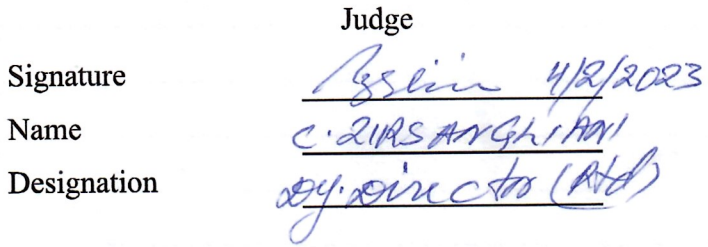 Judge
Signature 4/2/2023
Name C. ZIRSANGLIANI
Designation Dy. Director (Rtd)